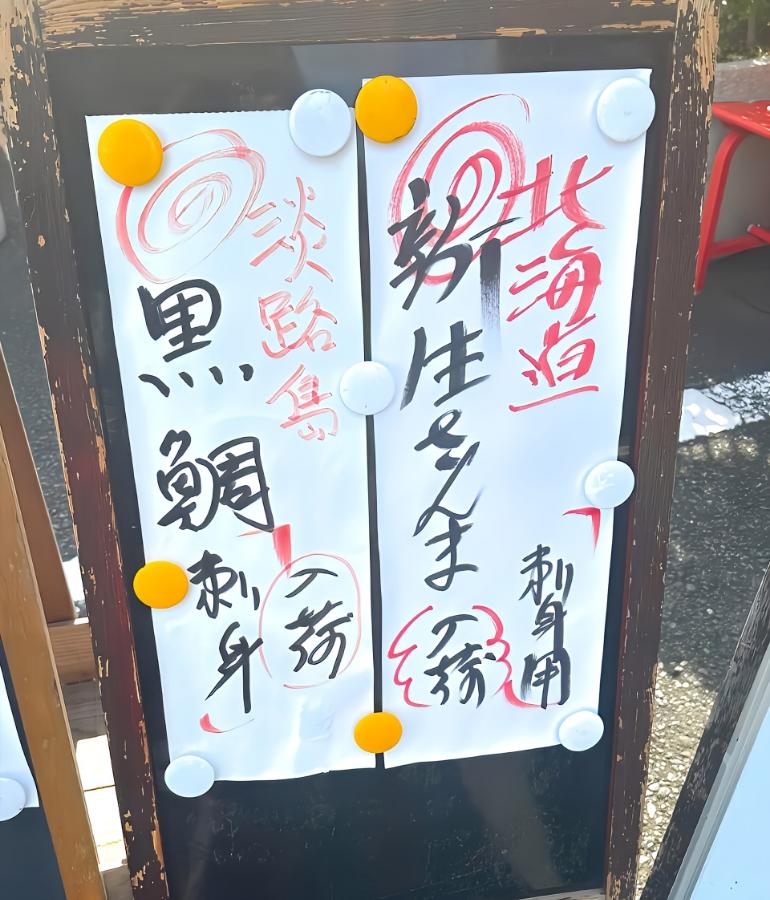 北海道
新生さんま
刺身用
入荷
淡路島
黒鯛
刺身
入荷